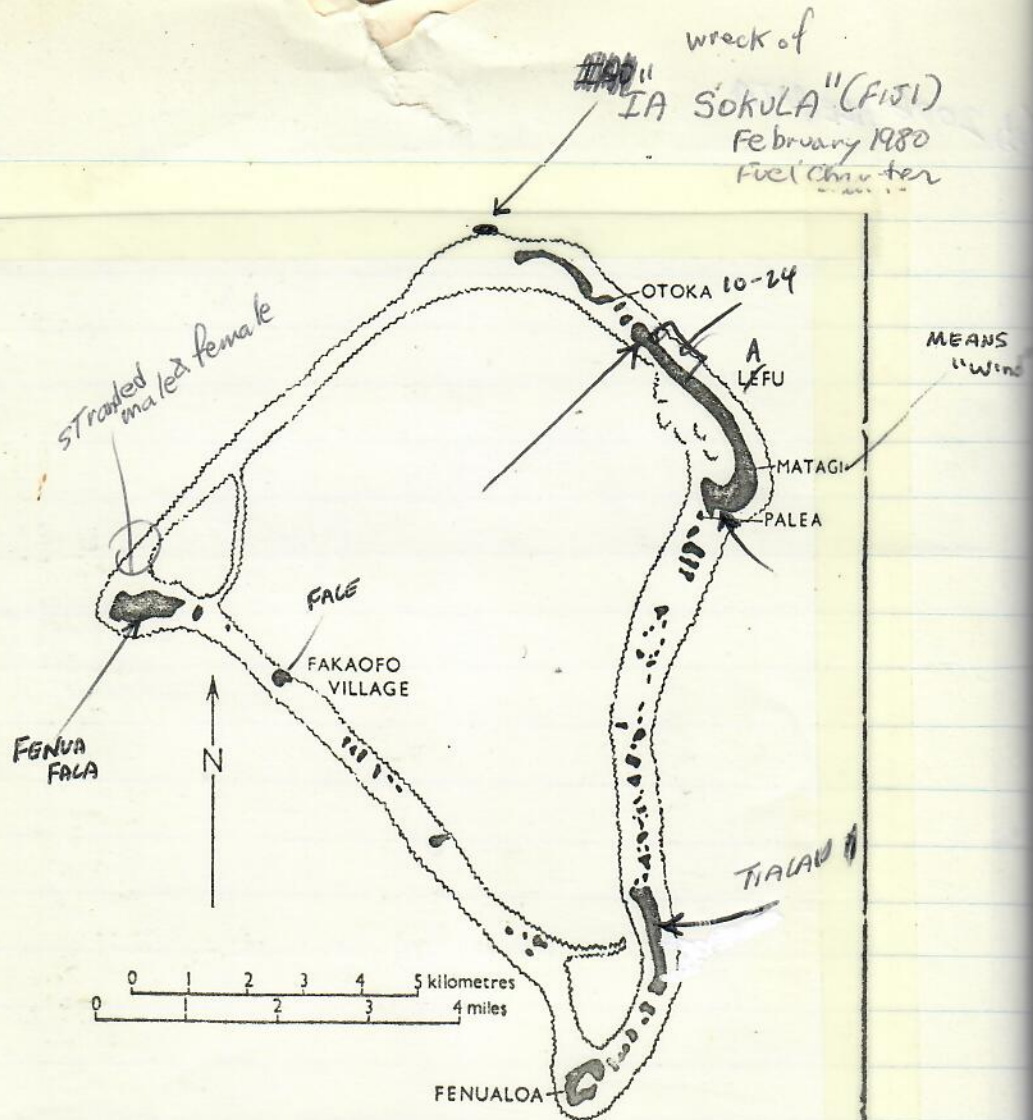 wreck of
"IA SOKULA" (FIJI)
February 1980
Fuel Charter
OTOKA
10-24
A
LEFU
MEANS
"Wind
MATAGI
PALEA
stranded
male & female
FALE
FAKAOFO
VILLAGE
FENUA
FALA
N
0 1 2 3 4 5 kilometres
0 2 3 4 miles
FENUALOA